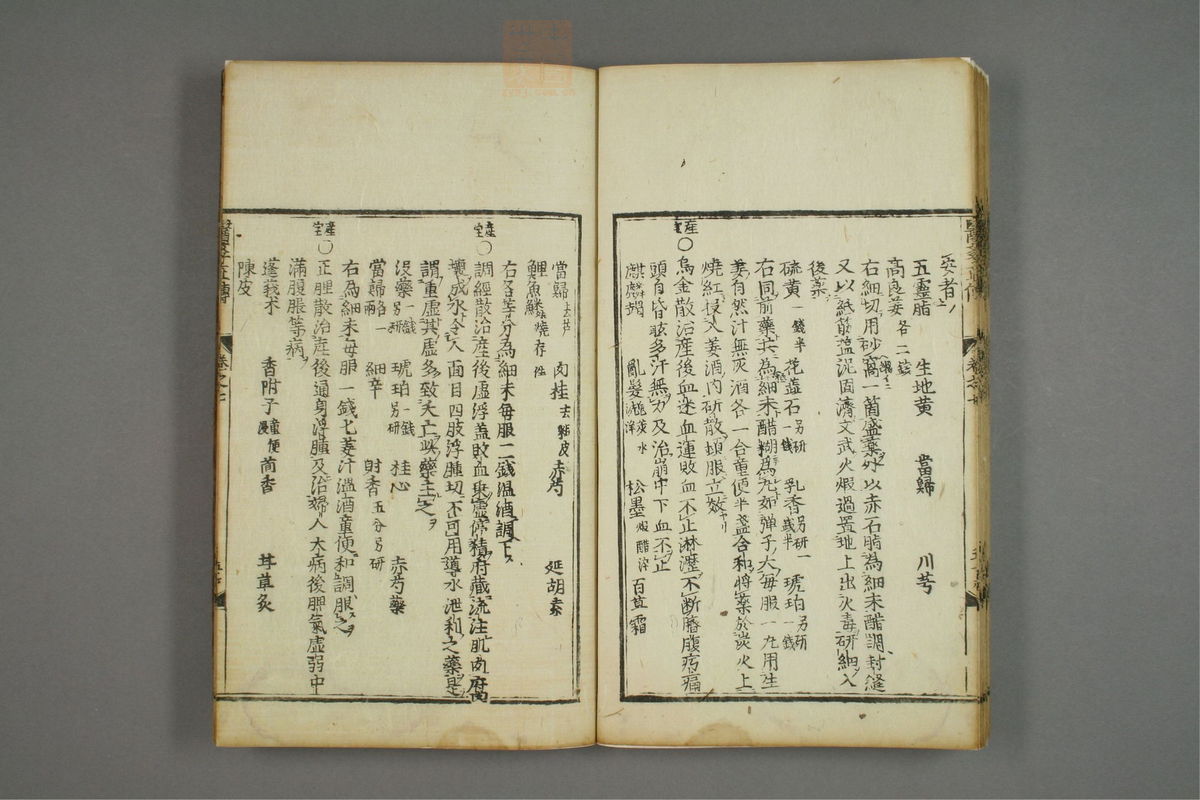 妄者
五靈脂 生地黃 當歸 川芎
高良姜 各二錢
右細切用砂窩一箇盛藥外以赤石脂為細末醋調封縫
又以紙筋塩泥固濟文武火煆過置地上出火毒研細入
後藥
硫黃一錢半 花蕊石另研一錢 乳香另研一錢半 琥珀另研一錢
右同前藥共為細末醋糊為丸如弾子大每服一丸用生
姜自然汁無灰酒各一合童便半盞合和將藥於炭火上
燒紅投入姜酒內研散頓服立效
産宝○烏金散治産後血迷血運敗血不止淋瀝不断臍腹疞痛
頭目昏眩多汗無力及治崩中下血不止
麒麟蝎 亂髮 松墨煆醋淬 百草霜
當歸去芦 肉桂去麁皮 赤芍 延胡索
鯉魚鱗燒存性
右各等分為細末每服二錢温酒調下
産宝○調經散治産後虛浮盖敗血乗虛停積府藏流注肌肉腐
壞成水令人面目四肢浮腫切不可用導水泄利之藥是
謂重虛其虛多致夭亡此藥主之
沒藥另研一錢 琥珀另研一錢 桂心 赤芍藥
當歸各一兩 細辛 射香五分另研
右為細末每服一錢匕姜汁温酒童便和調服之
産宝○正脾散治産後通身浮腫及治婦人大病後脾氣虛弱中
滿腹脹等病
蓬莪术 香附子童便浸 茴香 甘草炙
陳皮
卷之七